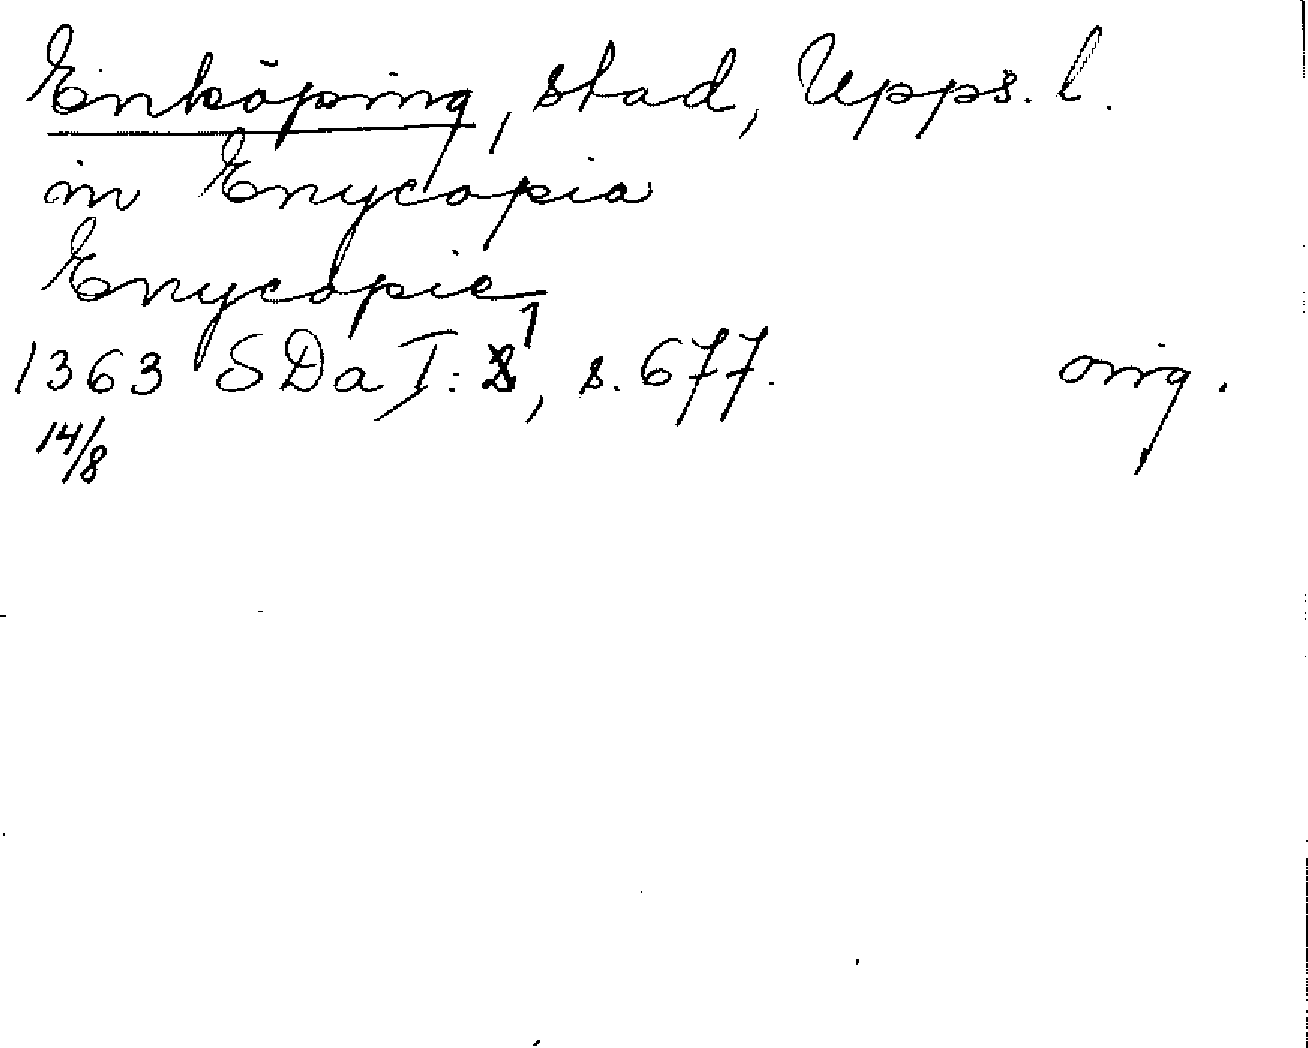 Enköping, stad, Upps. l.
in Enycopia
Enycopie
1363 SDa I: 1, s. 677. orig.
14/8